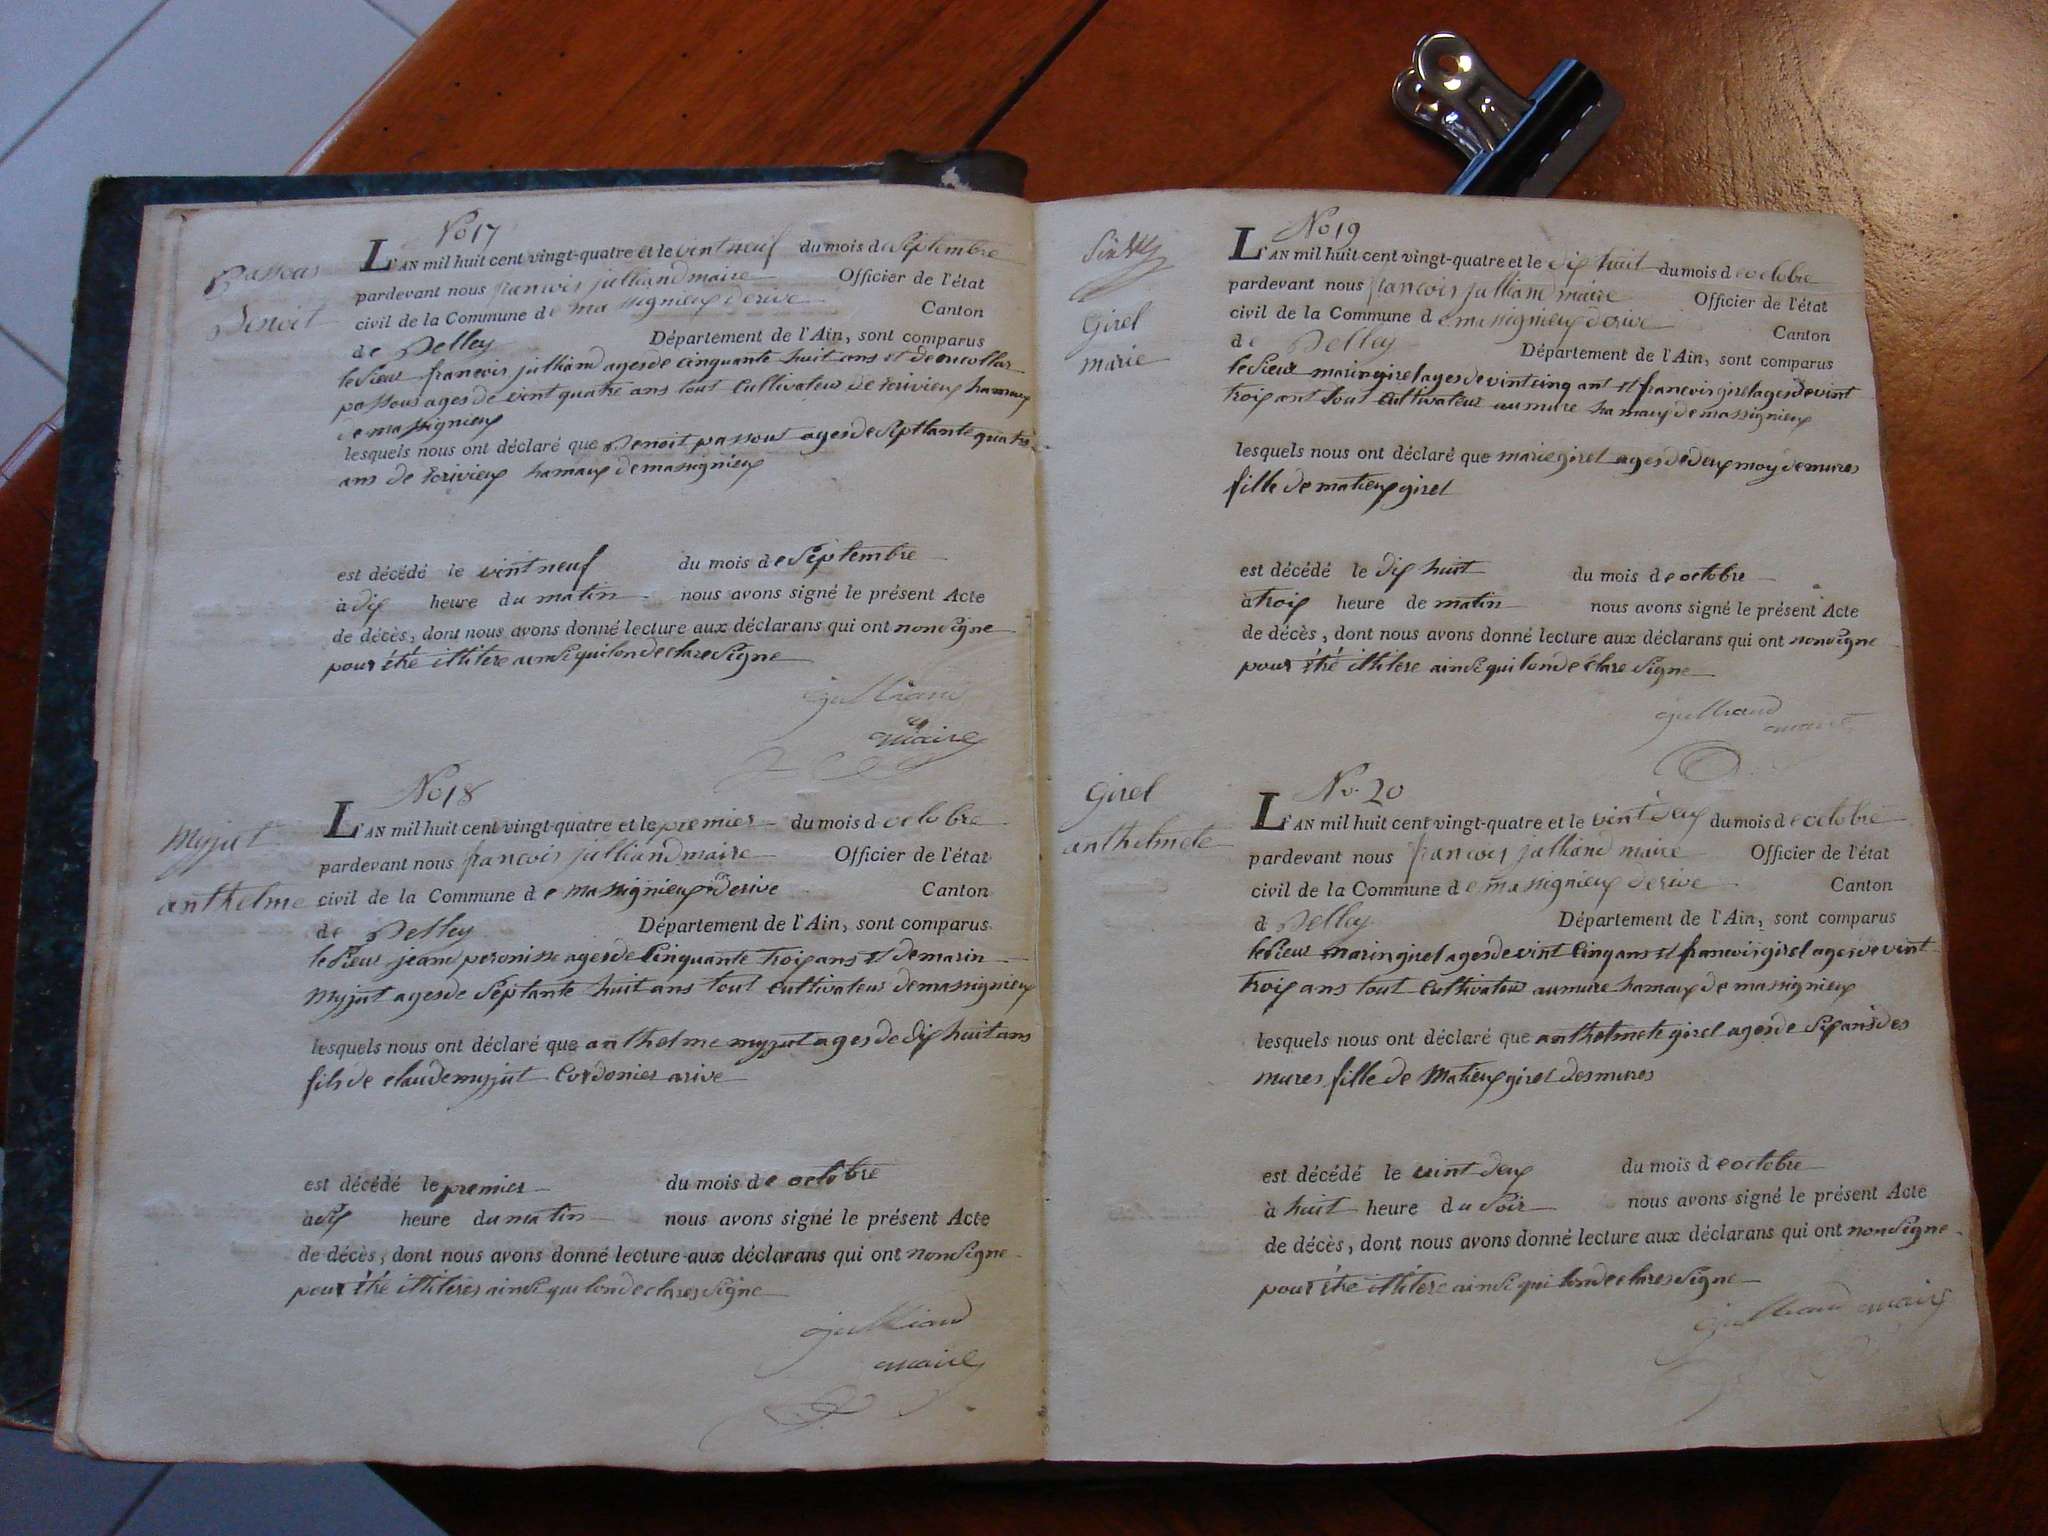 No 17
Benoit
L'AN mil huit cent vingt-quatre et le vint neuf du mois de Septembre
pardevant nous francois julliand maire Officier de l'état
civil de la Commune de massignieux derive Canton
de Belley Département de l'Ain, sont comparus
le sieur francois julliand ages de cinquante huit ans et de
passous ages de vint quatre ans tout cultivateur de ecrivieux hamaux
de massignieux
lesquels nous ont déclaré que Benoit passous ages de Septtante quatre
ans de ecrivieux hamaux de massignieux
est décédé le vint neuf du mois de Septembre
à dix heure du matin nous avons signé le présent Acte
de décès, dont nous avons donné lecture aux déclarans qui ont non signe
pour étré illitere ainsi qui lon declare signe
julliand
maire
No 18
myjut
anthelme
L'AN mil huit cent vingt-quatre et le premier du mois d octobre
pardevant nous francois julliand maire Officier de l'état
civil de la Commune de massignieux derive Canton
de Belley Département de l'Ain, sont comparus
le sieur jean peronisse ages de cinquante troix ans et de marin
myjut ages de Septante huit ans tout cultivateur de massignieux
lesquels nous ont déclaré que anthelme myjut ages de dix huit ans
fils de claude myjut cordonier a rive
est décédé le premier du mois de octobre
à six heure du matin nous avons signé le présent Acte
de décès, dont nous avons donné lecture aux déclarans qui ont non signe
pour étré illiteres ainsi qui lon declares signe
julliand
maire
No 19
Girel
marie
L'AN mil huit cent vingt-quatre et le dix huit du mois d octobre
pardevant nous francois julliand maire Officier de l'état
civil de la Commune de massignieux derive Canton
de Belley Département de l'Ain, sont comparus
le sieur marin girel ages de vint cinq ant et francois girel ages de vint
troix ant tout cultivateur au mure hamaux de massignieux
lesquels nous ont déclaré que marie girel ages de deux moy de mures
fille de matieux girel
est décédé le dix huit du mois de octobre
à troix heure de matin nous avons signé le présent Acte
de décès, dont nous avons donné lecture aux déclarans qui ont non signe
pour étré illitere ainsi qui lon declare signe
julliand
maire
No. 20
Girel
anthelmete
L'AN mil huit cent vingt-quatre et le vint deux du mois de octobre
pardevant nous francois julliand maire Officier de l'état
civil de la Commune de massignieux derive Canton
d Belley Département de l'Ain, sont comparus
le sieur marin girel ages de vint cinq ans et francois girel ages de vint
troix ans tout cultivateur au mure hamaux de massignieux
lesquels nous ont déclaré que anthelmete girel ages de six ans des
mures fille de Matieux girel des mures
est décédé le vint deux du mois de octobre
à huit heure du soir nous avons signé le présent Acte
de décès, dont nous avons donné lecture aux déclarans qui ont non signe
pour étré illitere ainsi qui lon declares signe
julliand maire